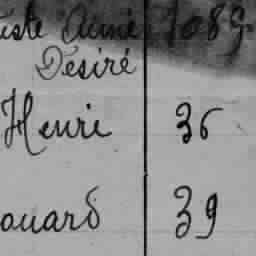 iste Aimé 1089
Désiré
Henri 36
ouard 39